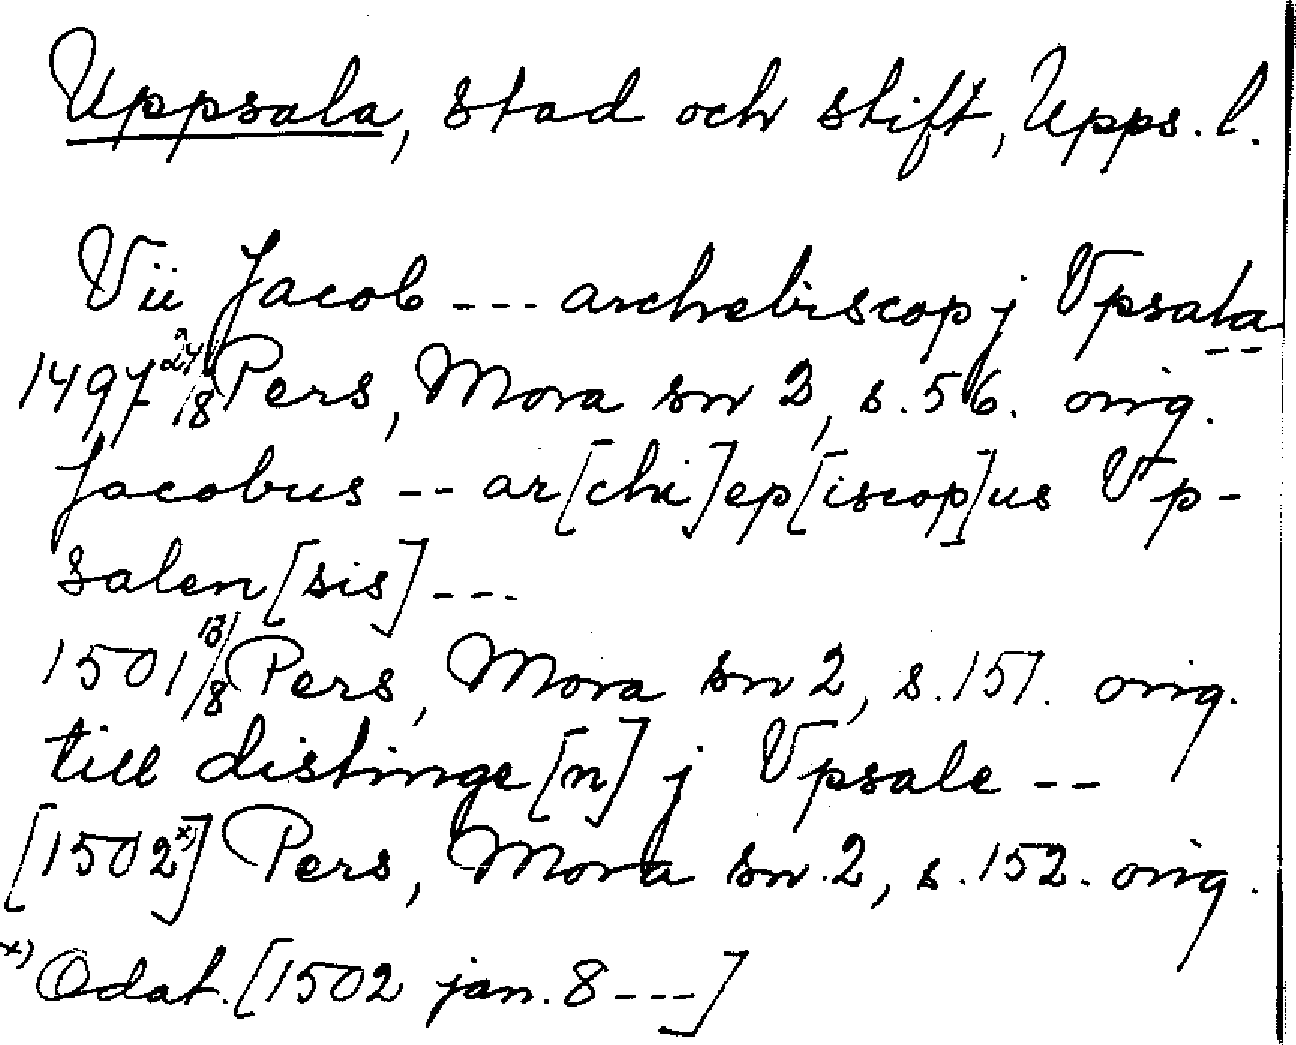 Uppsala, stad och stift, Upps. l.
Vii Jacob --- archebiscop j Vpsala
1497 27/8 Pers, Mora sn 2, s. 56. orig.
Jacobus -- ar[chi]ep[iscop]us Vp-
salen[sis] ---
1501 13/8 Pers, Mora sn 2, s. 151. orig.
till distinge[n] j Vpsale --
[1502x)] Pers, Mora sn. 2, s. 152. orig.
x) Odat. [1502 jan. 8 ---]